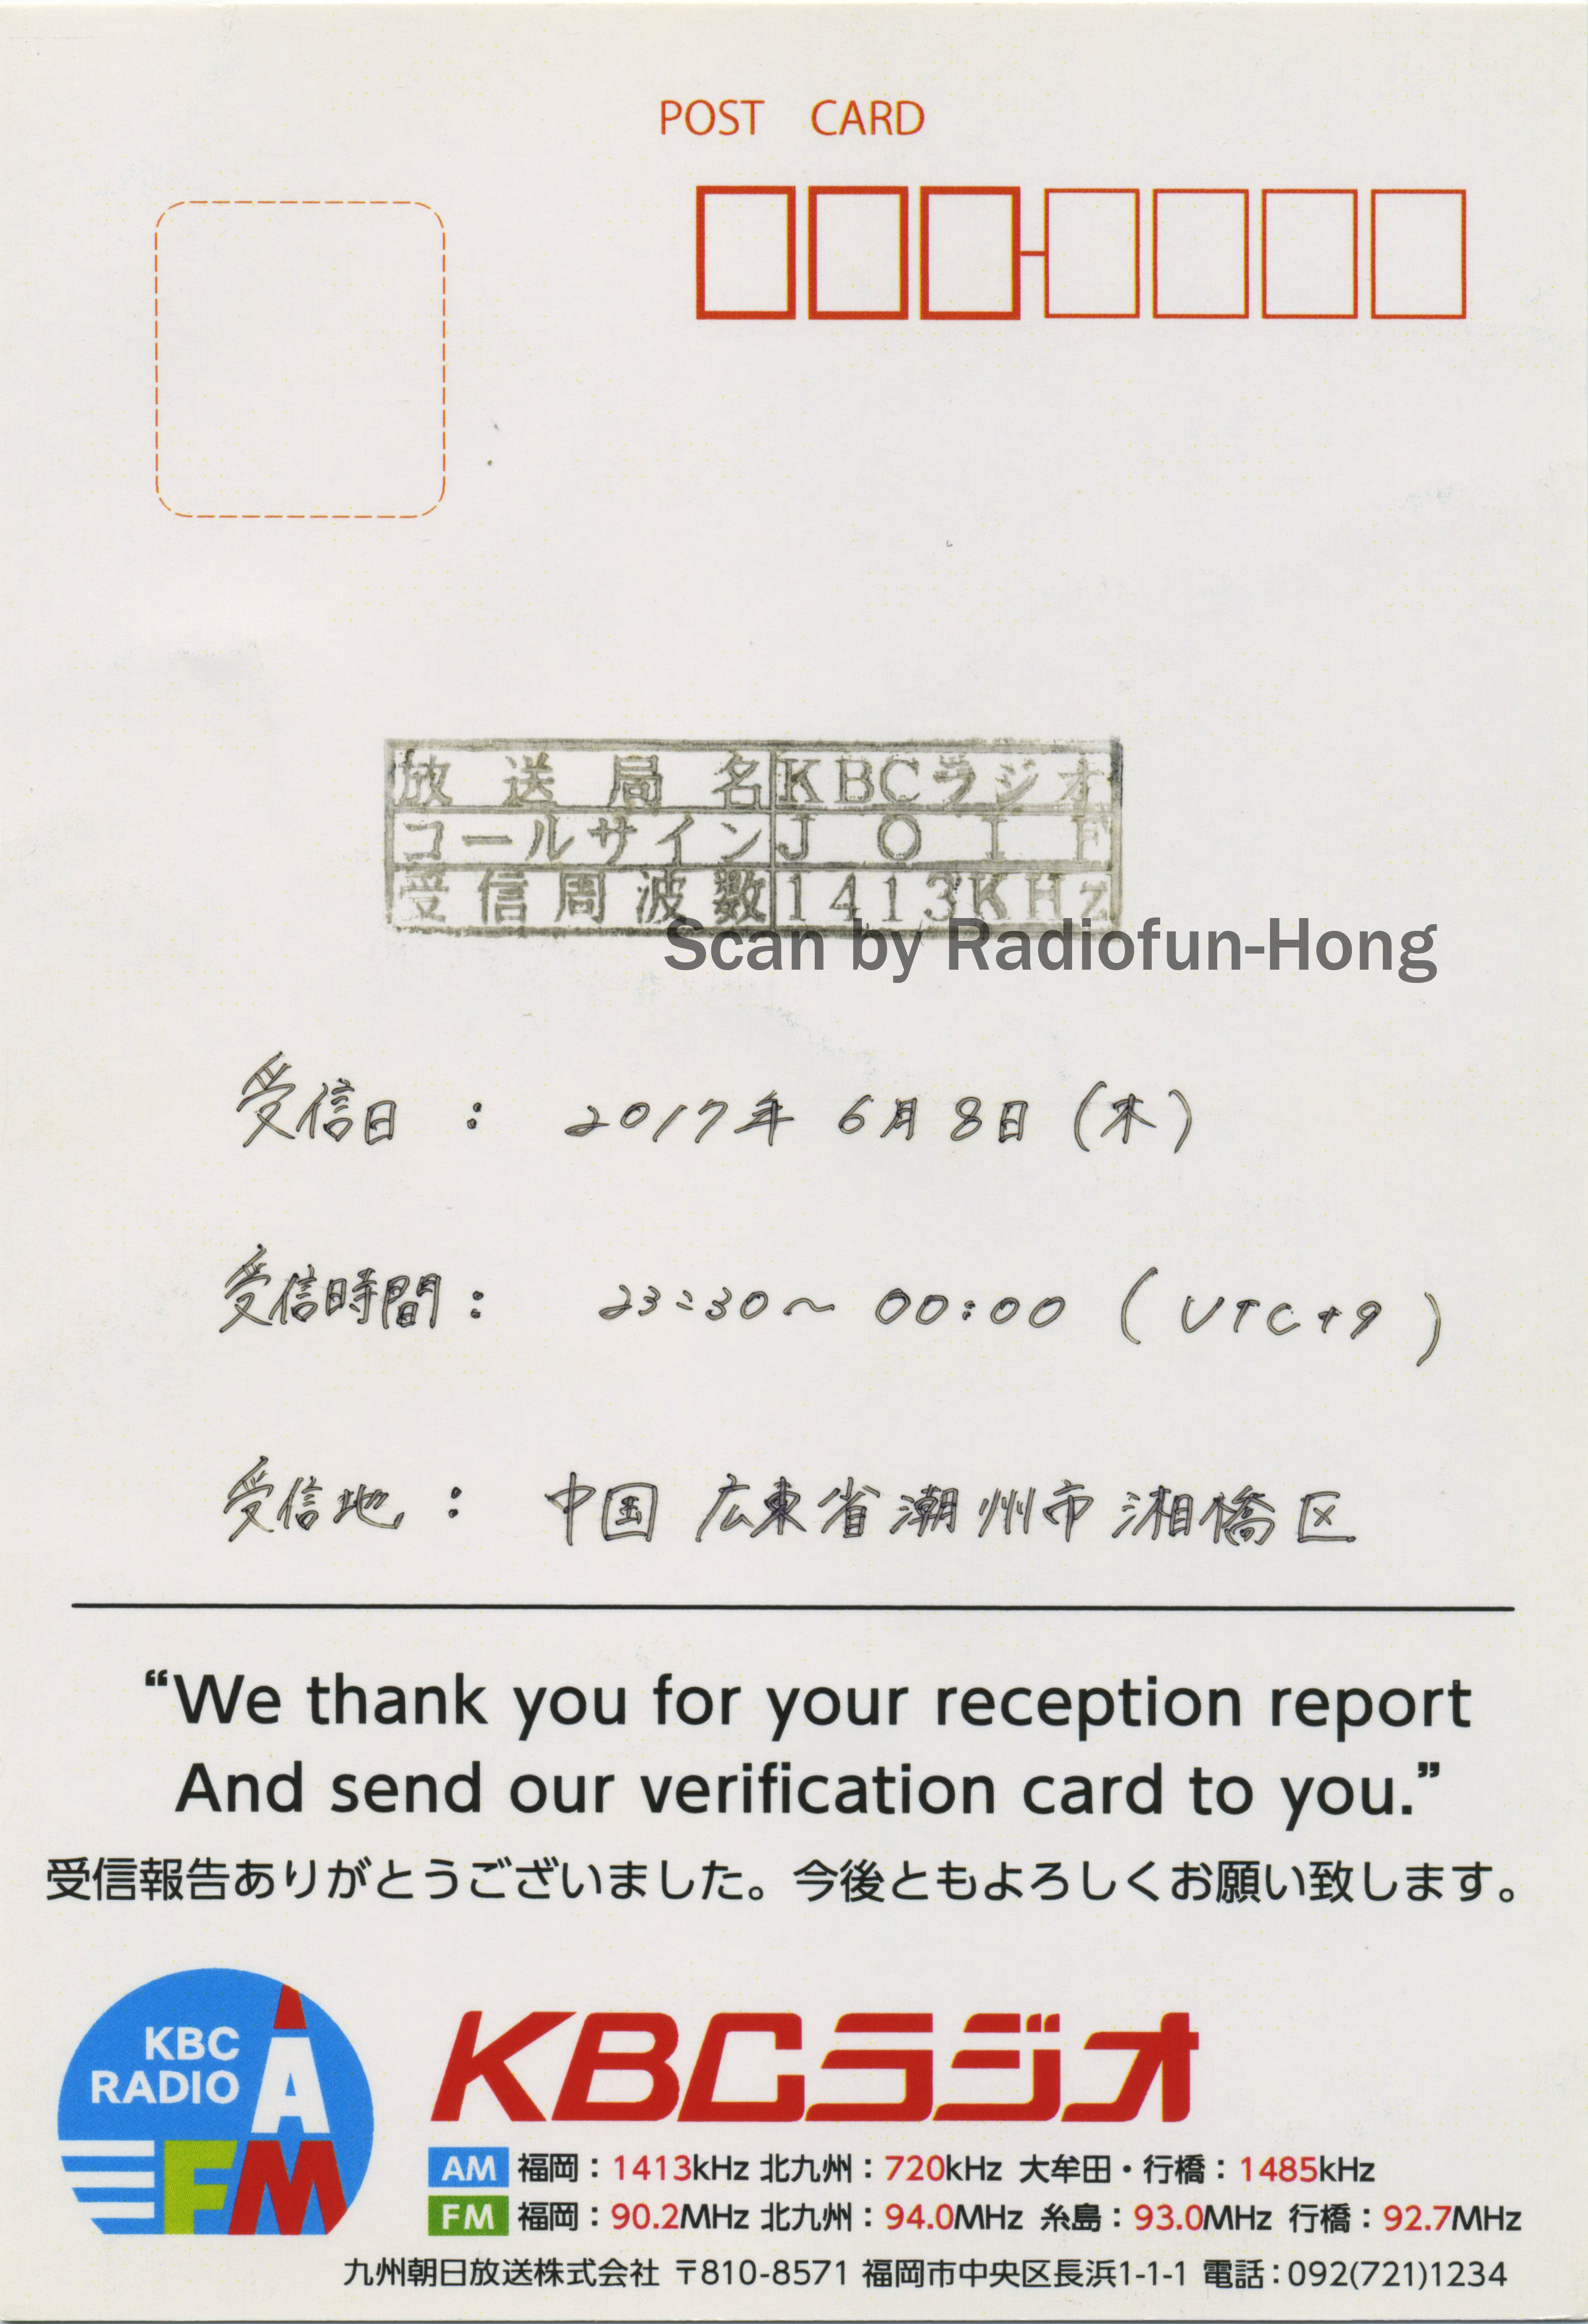 POST CARD
放送局名 KBCラジオ
コールサイン JOIF
受信周波数 1413KHz
Scan by Radiofun-Hong
受信日 : 2017年 6月 8日 (木)
受信時間 : 23:30~ 00:00 ( UTC+9 )
受信地 : 中国 広東省潮州市湘橋区
“We thank you for your reception report
And send our verification card to you.”
受信報告ありがとうございました。今後ともよろしくお願い致します。
KBC
RADIO
A
FM
KBCラジオ
AM 福岡：1413kHz 北九州：720kHz 大牟田・行橋：1485kHz
FM 福岡：90.2MHz 北九州：94.0MHz 糸島：93.0MHz 行橋：92.7MHz
九州朝日放送株式会社 〒810-8571 福岡市中央区長浜1-1-1 電話：092(721)1234